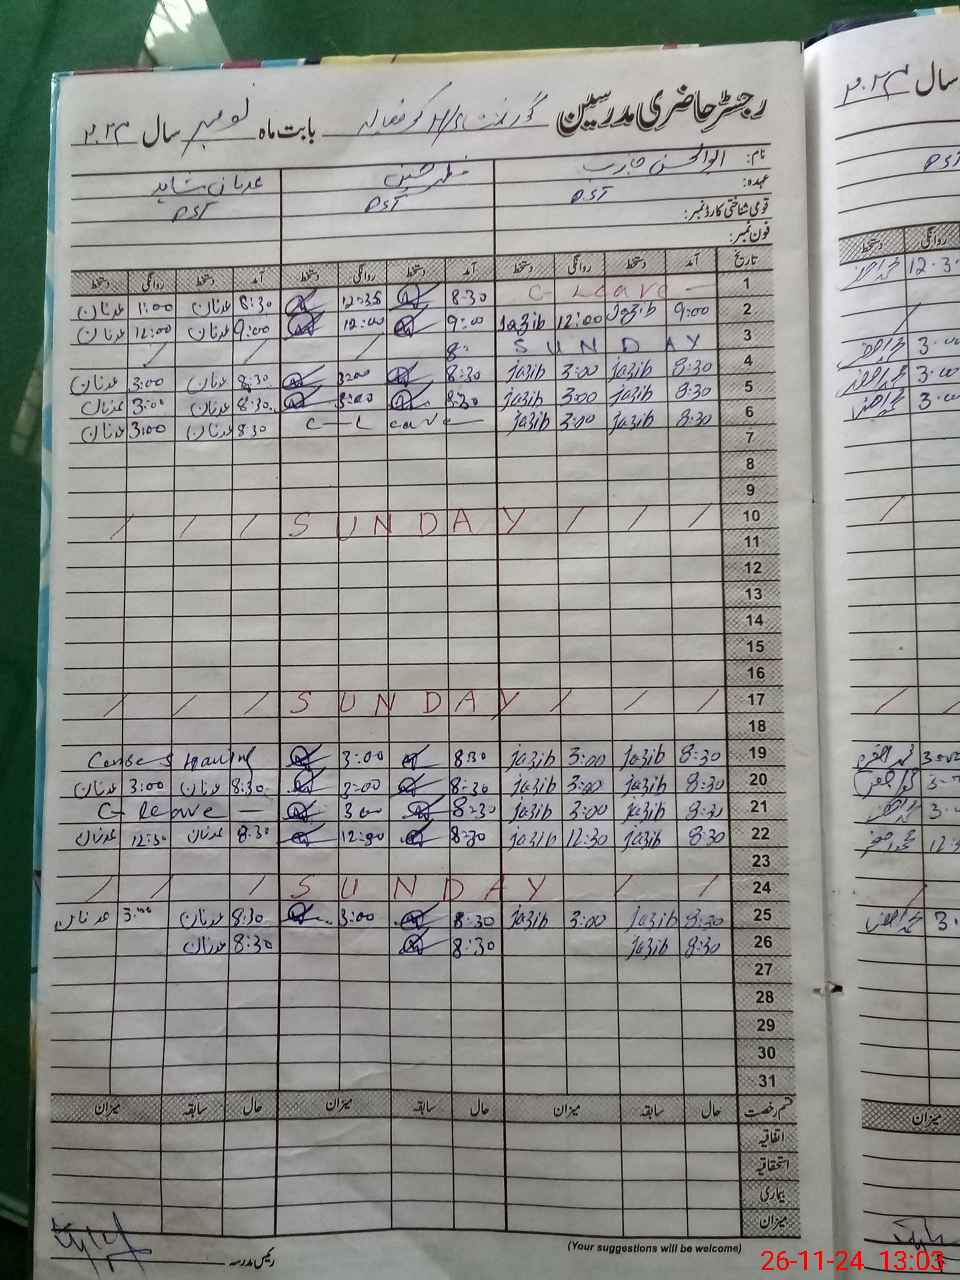 رجسٹر حاضری مدرسین گورنمنٹ بابت ماہ نومبر سال ۲۰۲۴
نام: ابوالحسن جازب مظہر حسین عدنان شاہد
عہدہ: PST PST PST
قومی شناختی کارڈ نمبر:
فون نمبر:
تاریخ آمد دستخط روانگی دستخط آمد دستخط روانگی دستخط آمد دستخط روانگی دستخط
1 C- Leave — 8:30 12:35 8:30 عدنان 1:00 عدنان
2 9:00 Jazib 12:00 Jazib 9:00 12:00 9:00 عدنان 12:00 عدنان
3 SUNDAY 8:
4 8:30 jazib 3:00 jazib 8:30 3:00 8:30 عدنان 3:00 عدنان
5 8:30 jazib 3:00 jazib 8:30 3:00 8:30 عدنان 3:00 عدنان
6 8:30 jazib 3:00 jazib C—Leave— 8:30 عدنان 3:00 عدنان
7
8
9
10 / / / SUNDAY / / /
11
12
13
14
15
16
17 / / / SUNDAY / / /
18
19 8:30 jazib 3:00 jazib 8:30 3:00
20 8:30 jazib 3:00 jazib 8:30 3:00 8:30 عدنان 3:00 عدنان
21 8:30 jazib 3:00 jazib 8:30 3:00 C- leave —
22 8:30 jazib 12:30 jazib 8:30 12:30 8:30 عدنان 12:30 عدنان
23
24 / / / SUNDAY / /
25 8:30 jazib 3:00 jazib 8:30 3:00 8:30 عدنان 3:00 عدنان
26 8:30 jazib 8:30 8:30 عدنان
27
28
29
30
31
قسم رخصت حال سابقہ میزان حال سابقہ میزان حال سابقہ میزان
اتفاقیہ
استحقاقیہ
بیماری
میزان
رئیس مدرسہ
(Your suggestions will be welcome)
سال ۲۰۲۴
PST
روانگی دستخط
12:3
3:00
3:00
3:00
3:00
3:0
3:0
12:3
3:
میزان
26-11-24 13:03